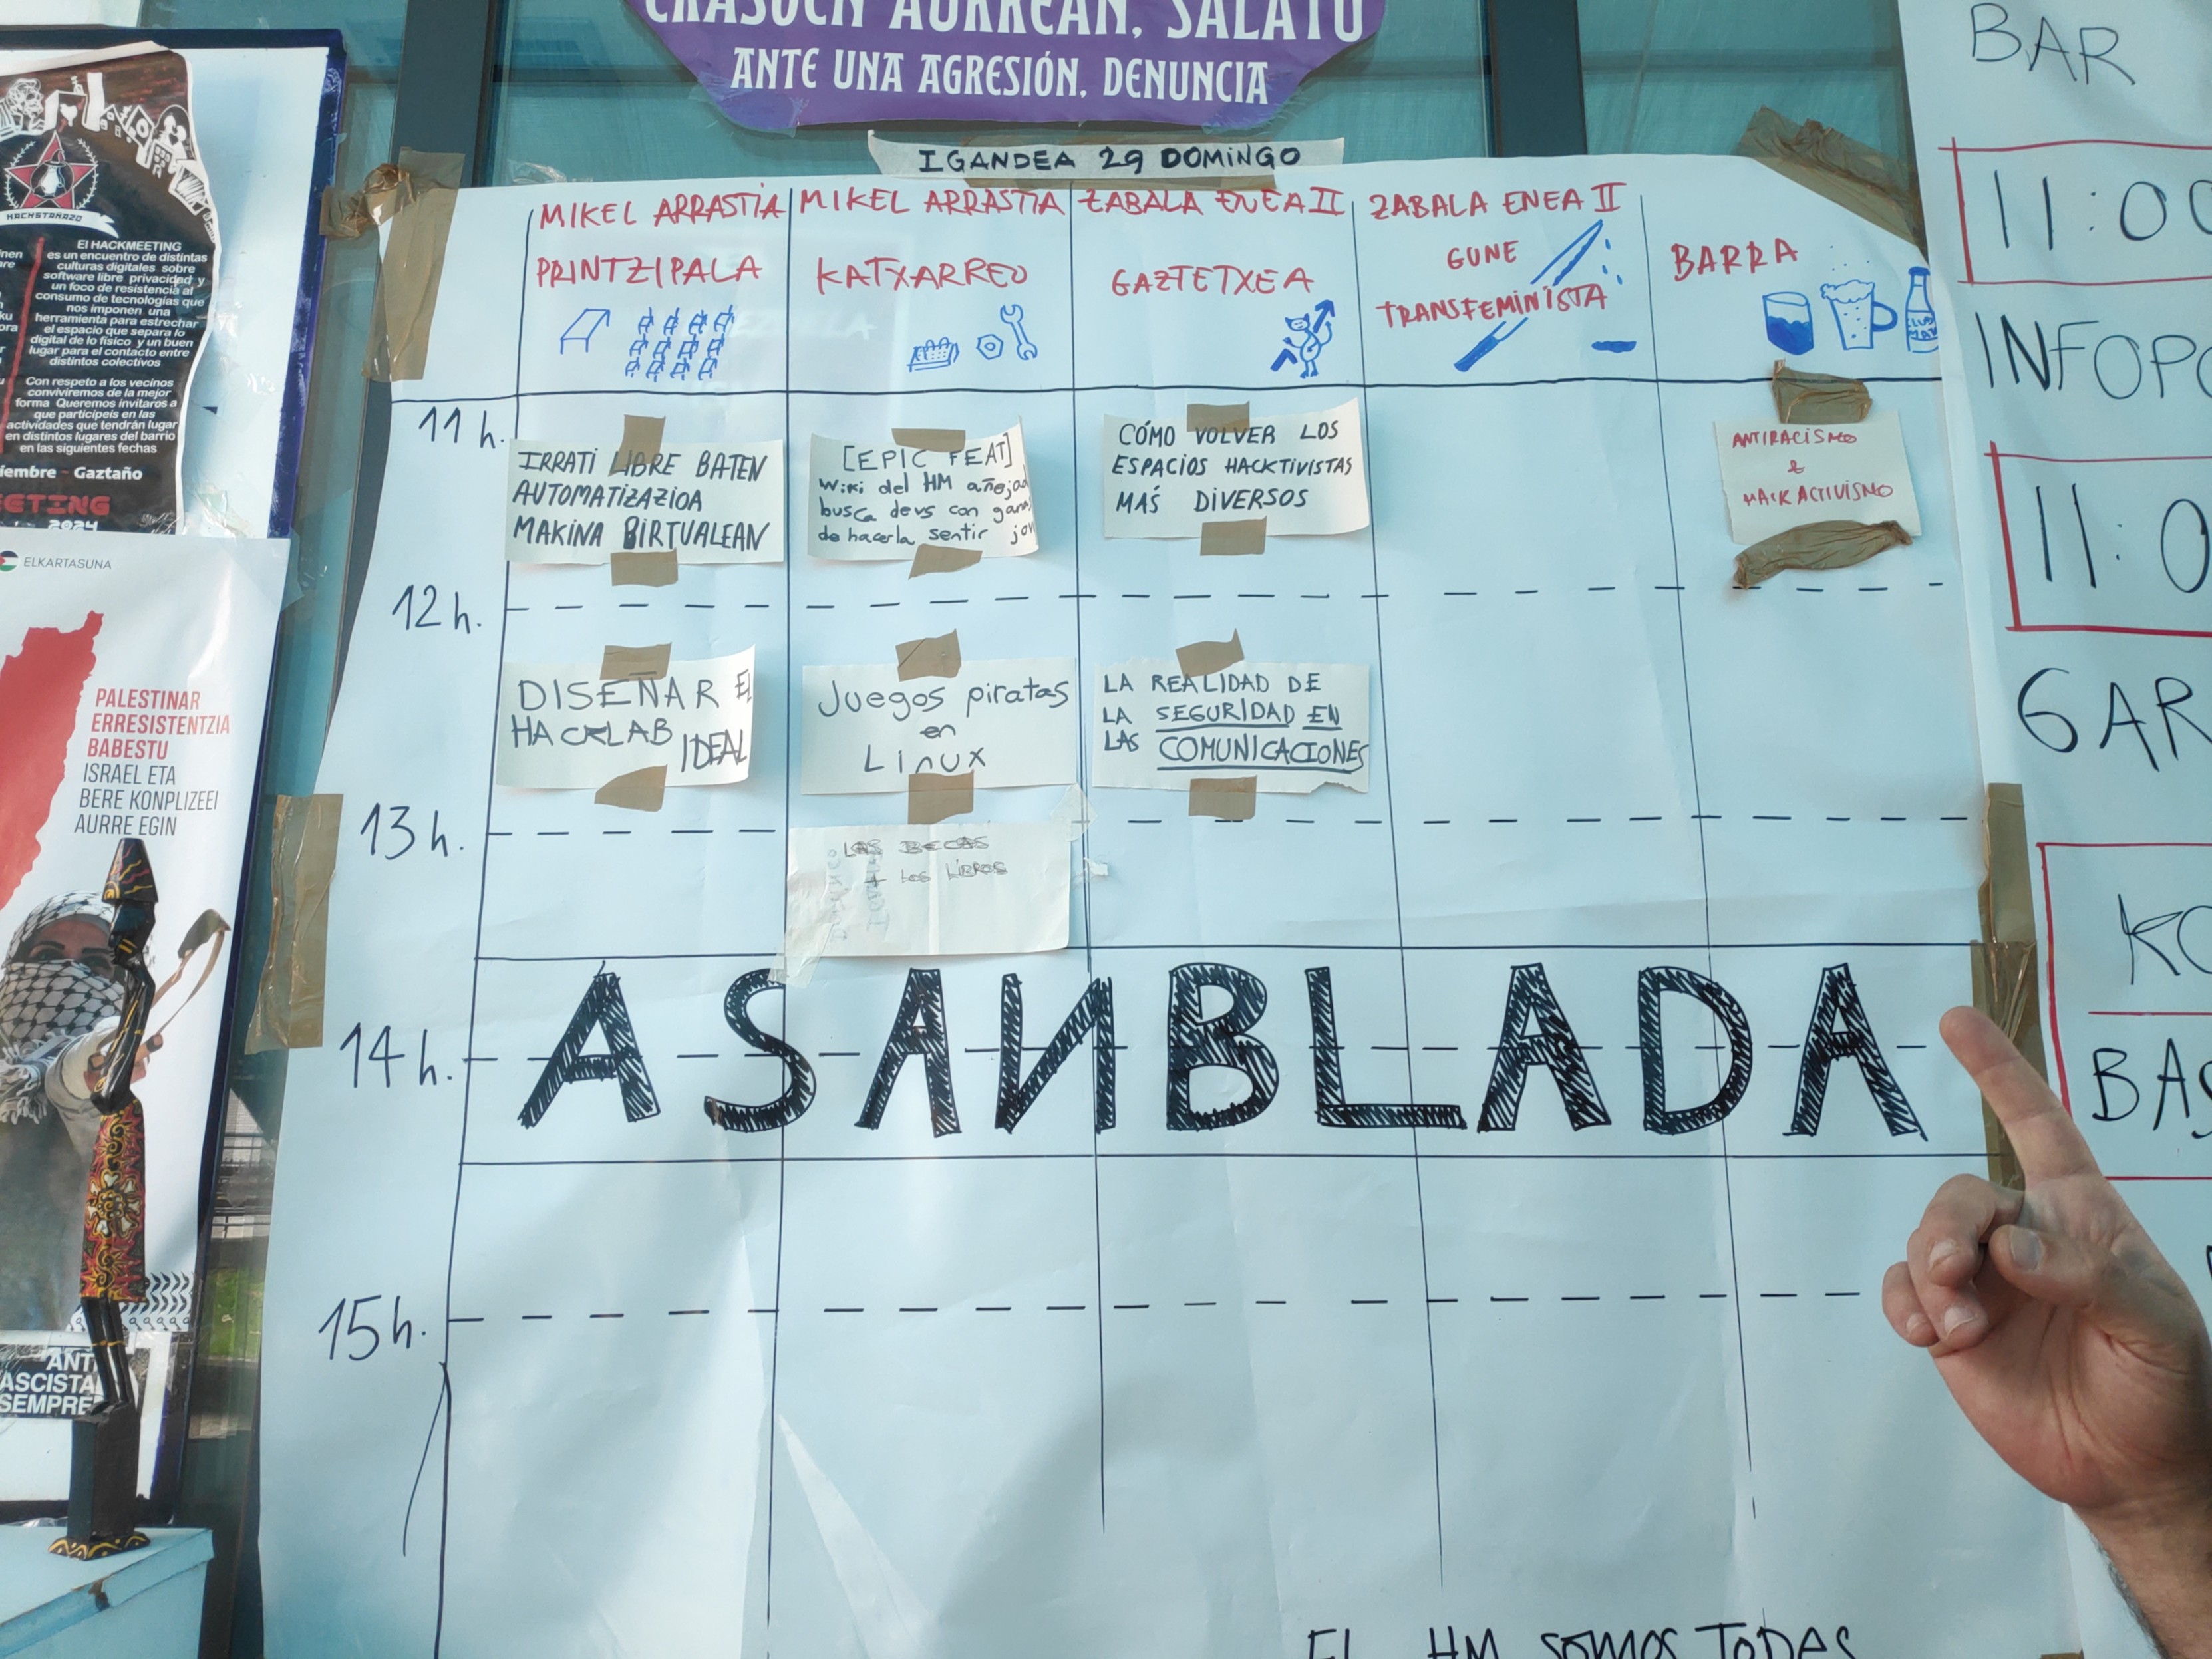 ERASOEN AURREAN, SALATU
ANTE UNA AGRESIÓN, DENUNCIA
IGANDEA 29 DOMINGO
MIKEL ARRASTIA
PRINTZIPALA
MIKEL ARRASTIA
KATXARREO
ZABALA ENEA II
GAZTETXEA
ZABALA ENEA II
GUNE
TRANSFEMINISTA
BARRA
11 h.
IRRATI LIBRE BATEN
AUTOMATIZAZIOA
MAKINA BIRTUALEAN
[EPIC FEAT]
Wiki del HM añejada
busca devs con ganas
de hacerla sentir jov
CÓMO VOLVER LOS
ESPACIOS HACKTIVISTAS
MÁS DIVERSOS
ANTIRACISMO
&
HACKACTIVISMO
12 h.
DISEÑAR EL
HACKLAB IDEAL
Juegos piratas
en
Linux
LA REALIDAD DE
LA SEGURIDAD EN
LAS COMUNICACIONES
13 h.
LAS BECAS
+ LOS LIBROS
14 h.
ASANBLADA
15 h.
EL HM SOMOS TODES
BAR
11:00
INFOPO
11:0
GAR
KO
BAS
HACKSTAÑAZO
El HACKMEETING
es un encuentro de distintas
culturas digitales sobre
software libre, privacidad y
un foco de resistencia al
consumo de tecnologías que
nos imponen una
herramienta para estrechar
el espacio que separa lo
digital de lo físico y un buen
lugar para el contacto entre
distintos colectivos
Con respeto a los vecinos
conviviremos de la mejor
forma Queremos invitaros a
que participéis en las
actividades que tendrán lugar
en distintos lugares del barrio
en las siguientes fechas
iembre - Gaztaño
ETING
2024
ELKARTASUNA
PALESTINAR
ERRESISTENTZIA
BABESTU
ISRAEL ETA
BERE KONPLIZEEI
AURRE EGIN
ANTI
ASCISTA
SEMPRE